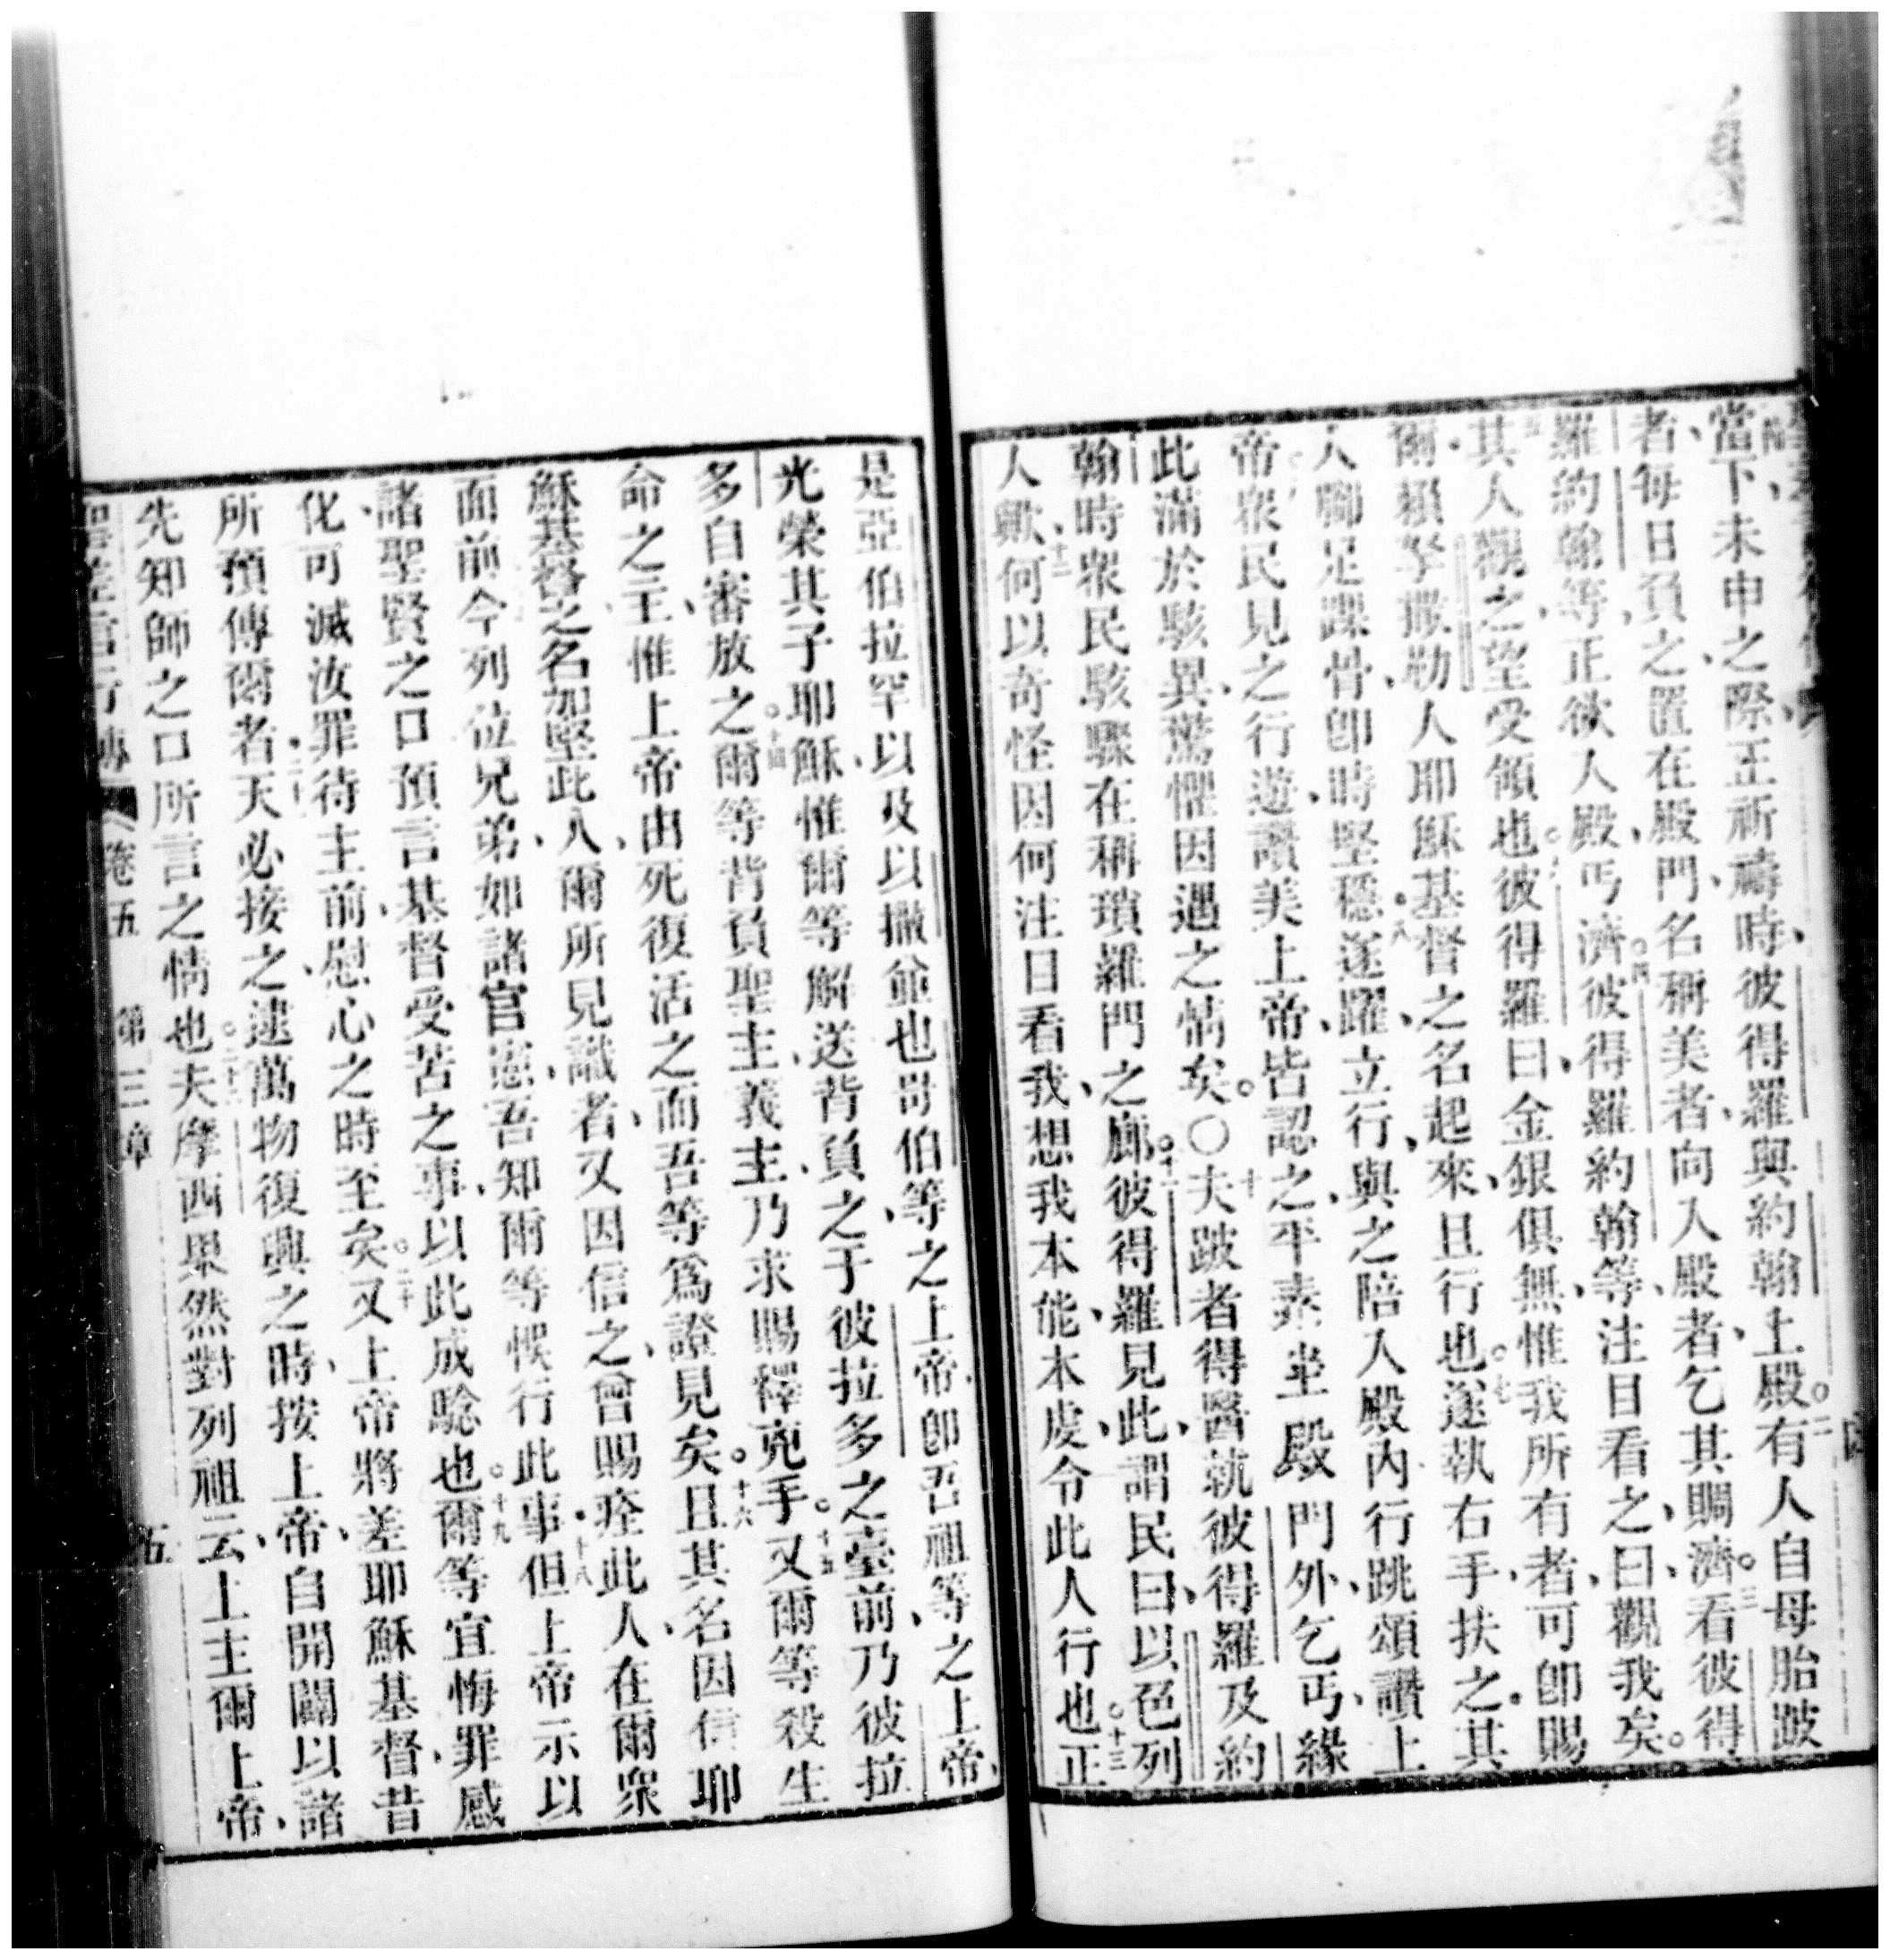 當下未申之際、正祈禱時、彼得羅與約翰上殿。○二有人自母胎跛
者、每日負之、置在殿門、名稱美者、向入殿者、乞其賜濟。○三看彼得
羅約翰等、正欲入殿、丐濟。○四彼得羅約翰等、注目看之、曰、觀我矣。
五其人觀之、望受領也。○六彼得羅曰、金銀俱無、惟我所有者、可卽賜
爾。賴拏撒勒人耶穌基督之名、起來、且行也。○七遂執右手、扶之。其
人腳足踝骨、卽時堅穩。八遂躍、立行、與之陪入殿內、行跳頌讚上
帝。○九衆民見之行遊、讚美上帝、皆認之、平素坐殿門外、乞丐、緣
此滿於駭異、驚懼因遇之情矣。○十夫跛者得醫、執彼得羅及約
翰時、衆民駭驟在稱瑣羅門之廊。○十一彼得羅見此、謂民曰、以色列
人歟、十二何以奇怪、因何注目看我、想我本能、本虔、令此人行也。○十三正
是亞伯拉罕、以及以撒並也哥伯等、之上帝、卽吾祖等之上帝、
光榮其子耶穌、惟爾等解送背負之于彼拉多之臺前、乃彼拉
多自審放之。○十四爾等背負聖主、義主、乃求賜釋兇手。○十五又爾等殺生
命之主、惟上帝由死復活之、而吾等爲證見矣。○十六且其名因信耶
穌基督之名、加堅此人、爾所見識者、又因信之、曾賜痊此人、在爾衆
面前。今列位兄弟、如諸官憲、吾知爾等悞行此事。十八但上帝示以
諸聖賢之口、預言基督受苦之事、以此成驗也。○十九爾等宜悔罪感
化、可滅汝罪、待主前慰心之時至矣。○二十又上帝將差耶穌基督、昔
所預傳爾者。二十一天必接之、逮萬物復興之時、按上帝自開闢以諸
先知師之口、所言之情也。○二十二夫摩西果然對列祖云、上主爾上帝、
聖差言行傳 卷五 第三章 五